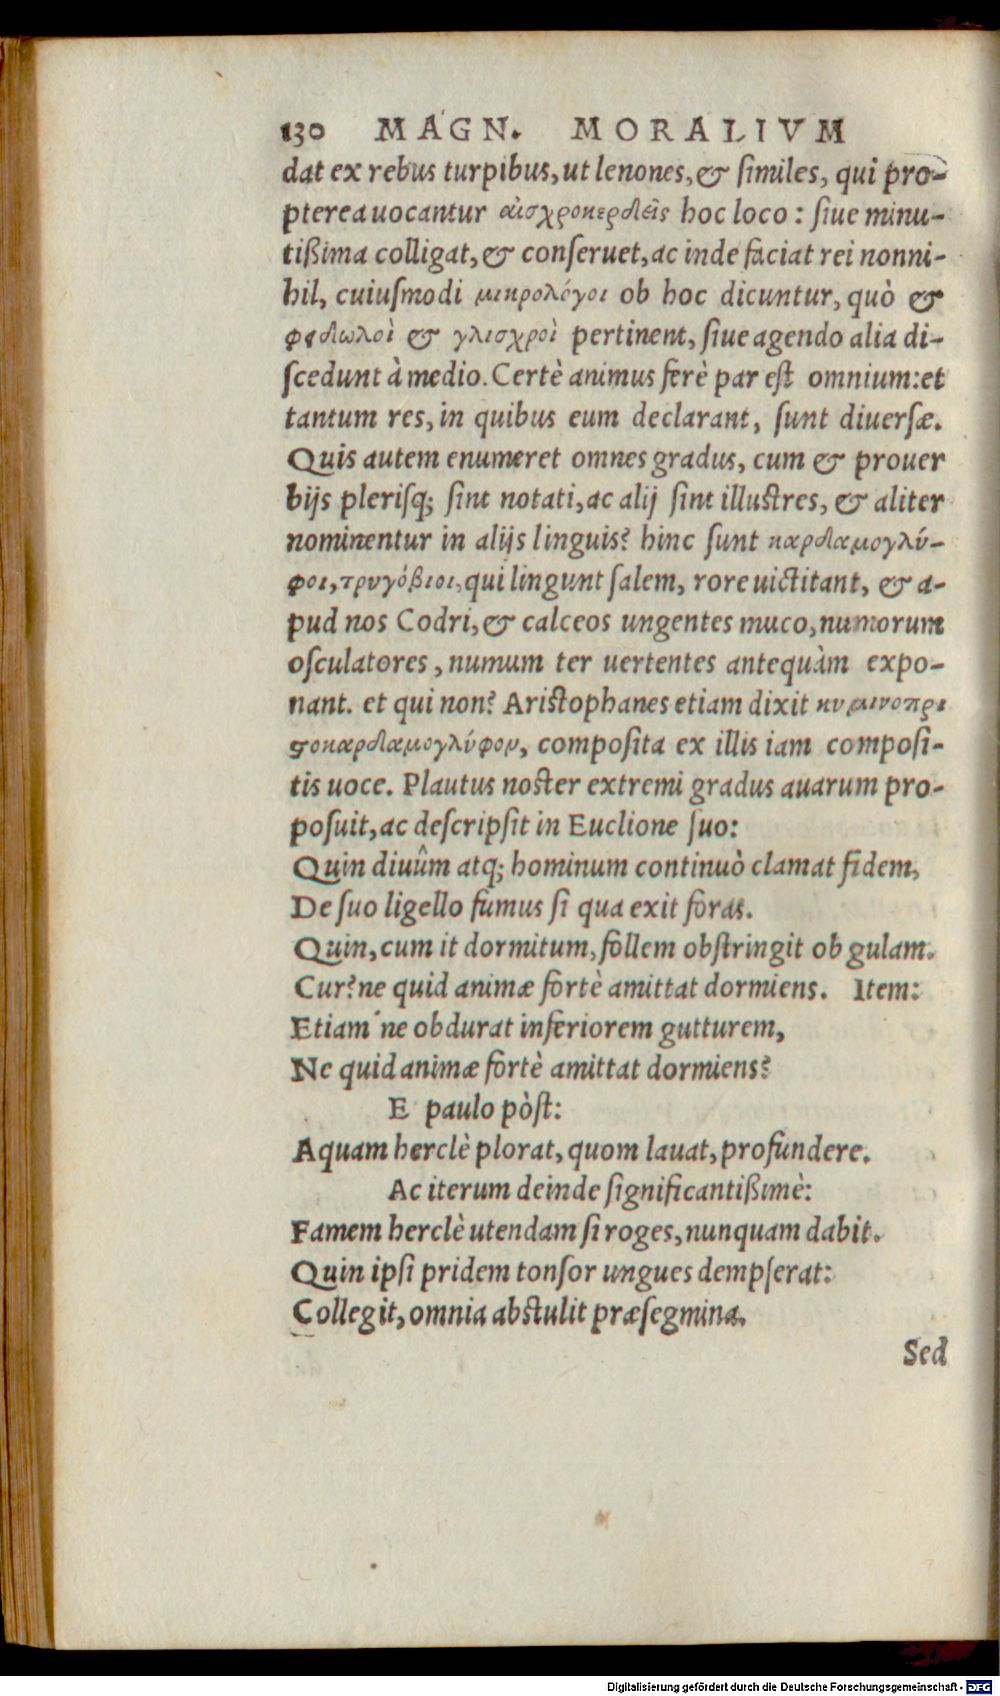 130 MAGN. MORALIVM
dat ex rebus turpibus, ut lenones, & ſimiles, qui pro-
pterea uocantur αἰσχροκερδεῖς hoc loco: ſiue minu-
tißima colligat, & conſeruet, ac inde faciat rei nonni-
hil, cuiuſmodi μικρολόγοι ob hoc dicuntur, quò &
φειδωλοὶ & γλισχροὶ pertinent, ſiue agendo alia di-
ſcedunt à medio. Certè animus ferè par eſt omnium: et
tantum res, in quibus eum declarant, ſunt diuerſæ.
Quis autem enumeret omnes gradus, cum & prouer
bijs pleriſq; ſint notati, ac alij ſint illuſtres, & aliter
nominentur in alijs linguis? hinc ſunt καρδαμογλύ-
φοι, τρυγόβιοι, qui lingunt ſalem, rore uictitant, & a-
pud nos Codri, & calceos ungentes muco, numorum
oſculatores, numum ter uertentes antequàm expo-
nant. et qui non? Ariſtophanes etiam dixit κυμινοπρι
ϛοκαρδαμογλύφον, compoſita ex illis iam compoſi-
tis uoce. Plautus noſter extremi gradus auarum pro-
poſuit, ac deſcripſit in Euclione ſuo:
Quin diuûm atq; hominum continuò clamat fidem,
De ſuo ligello fumus ſi qua exit foras.
Quin, cum it dormitum, follem obſtringit ob gulam.
Cur? ne quid animæ fortè amittat dormiens. Item:
Etiam'ne obdurat inferiorem gutturem,
Ne quid animæ fortè amittat dormiens?
E paulo pòſt:
Aquam herclè plorat, quom lauat, profundere.
Ac iterum deinde ſignificantißimè:
Famem herclè utendam ſi roges, nunquam dabit.
Quin ipſi pridem tonſor ungues dempſerat:
Collegit, omnia abſtulit præſegmina.
Sed
Digitalisierung gefördert durch die Deutsche Forschungsgemeinschaft - DFG